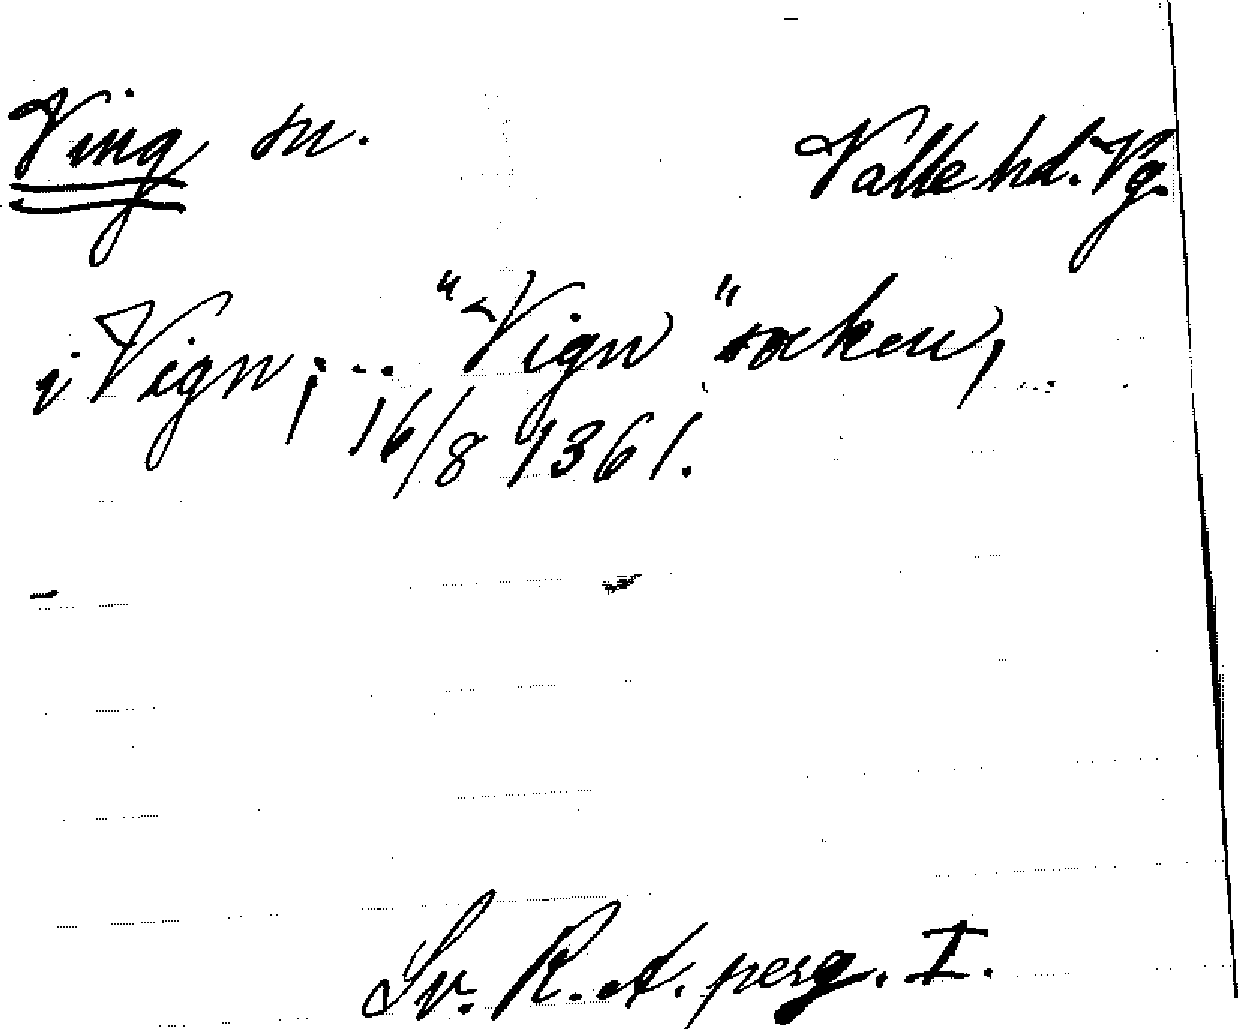 Ving sn. Valle hd. Vg.
i Vign; ... "Vign" socken,
16/8 1361.
Sv. R. A. perg. I.